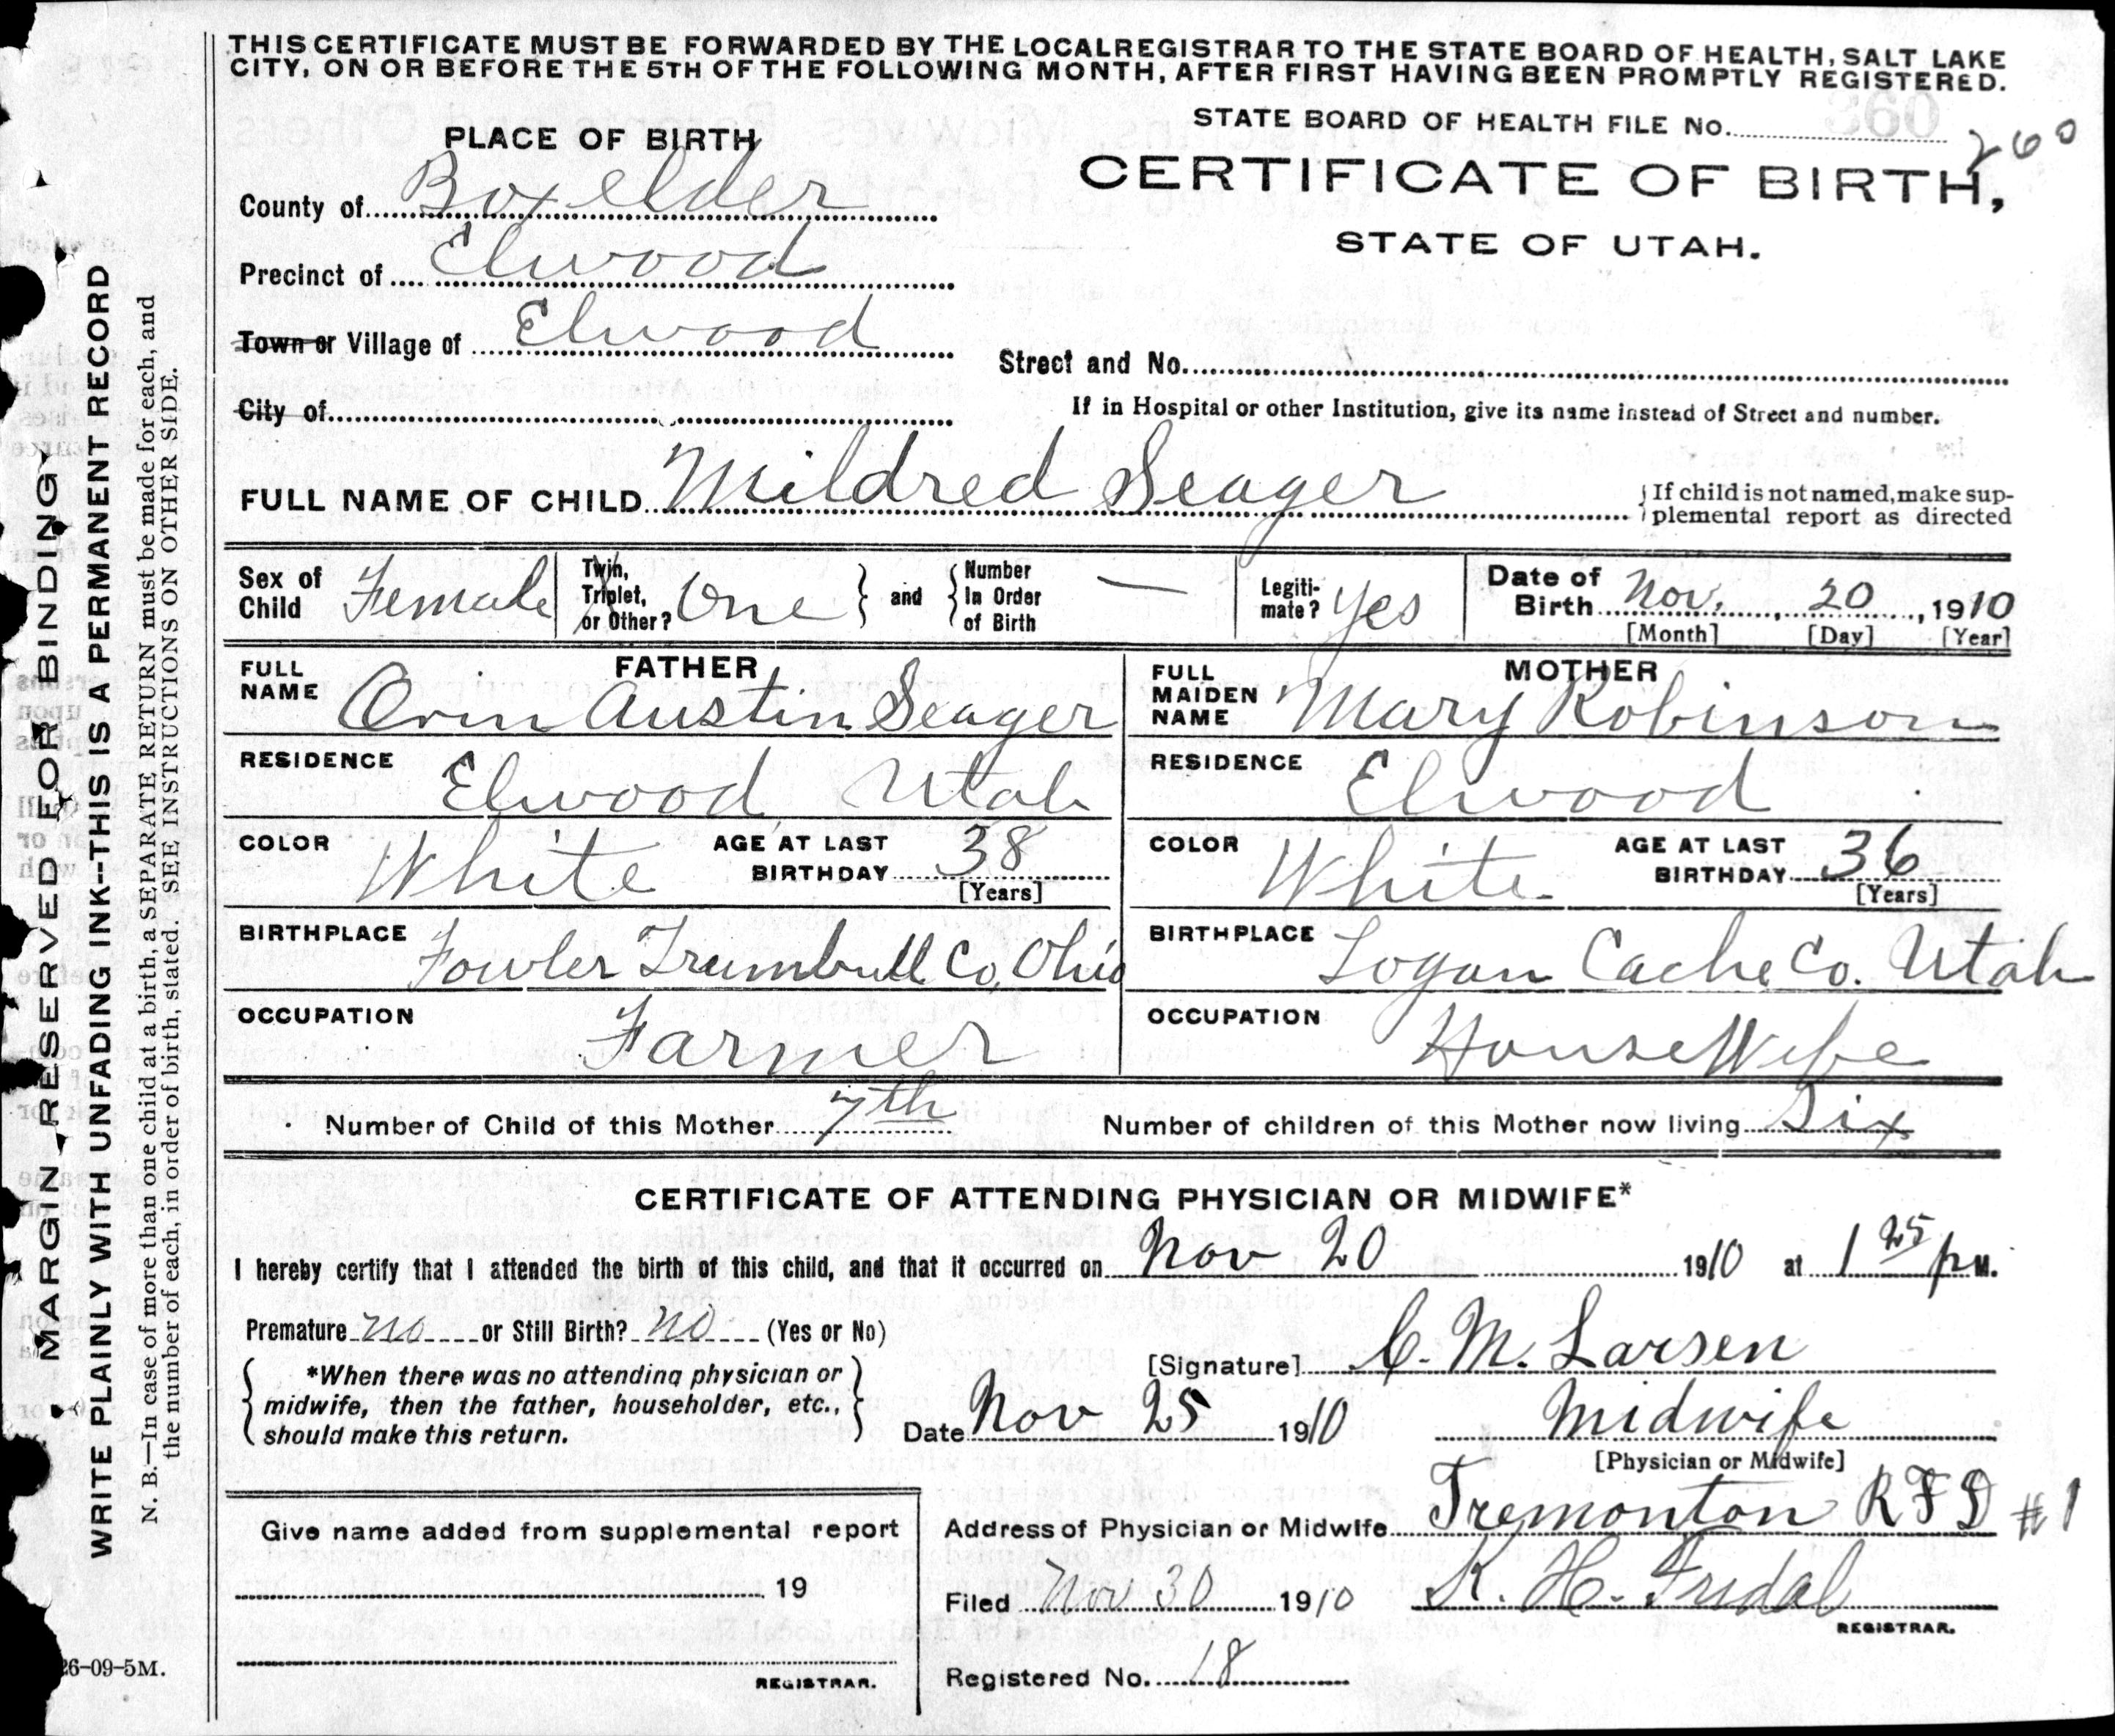 THIS CERTIFICATE MUST BE FORWARDED BY THE LOCAL REGISTRAR TO THE STATE BOARD OF HEALTH, SALT LAKE
CITY, ON OR BEFORE THE 5TH OF THE FOLLOWING MONTH, AFTER FIRST HAVING BEEN PROMPTLY REGISTERED.
STATE BOARD OF HEALTH FILE No. 360
260
PLACE OF BIRTH
CERTIFICATE OF BIRTH,
STATE OF UTAH.
County of Boxelder
Precinct of Elwood
Town or Village of Elwood
Street and No.
City of
If in Hospital or other Institution, give its name instead of Street and number.
FULL NAME OF CHILD Mildred Seager
If child is not named, make sup-
plemental report as directed
Sex of Child Female
Twin, Triplet, or Other? One and Number In Order of Birth —
Legiti-mate? Yes
Date of Birth Nov. 20, 1910
[Month] [Day] [Year]
FATHER
FULL NAME Orin Austin Seager
RESIDENCE Elwood, Utah
COLOR White AGE AT LAST BIRTHDAY 38
[Years]
BIRTHPLACE Fowler Trumbull Co, Ohio
OCCUPATION Farmer
MOTHER
FULL MAIDEN NAME Mary Robinson
RESIDENCE Elwood
COLOR White AGE AT LAST BIRTHDAY 36
[Years]
BIRTHPLACE Logan Cache Co. Utah
OCCUPATION HouseWife
Number of Child of this Mother 7th Number of children of this Mother now living Six
CERTIFICATE OF ATTENDING PHYSICIAN OR MIDWIFE*
I hereby certify that I attended the birth of this child, and that it occurred on Nov 20 1910 at 1 25 p M.
Premature no or Still Birth? no (Yes or No)
*When there was no attending physician or
midwife, then the father, householder, etc.,
should make this return.
[Signature] C. M. Larsen
Date Nov 25 1910
Midwife
[Physician or Midwife]
Give name added from supplemental report
19
REGISTRAR.
Address of Physician or Midwife Tremonton RFD #1
Filed Nov 30 1910 K. H. Fridal
REGISTRAR.
Registered No. 18
26-09-5M.
MARGIN RESERVED FOR BINDING
WRITE PLAINLY WITH UNFADING INK--THIS IS A PERMANENT RECORD
N. B.—In case of more than one child at a birth, a SEPARATE RETURN must be made for each, and
the number of each, in order of birth, stated. SEE INSTRUCTIONS ON OTHER SIDE.